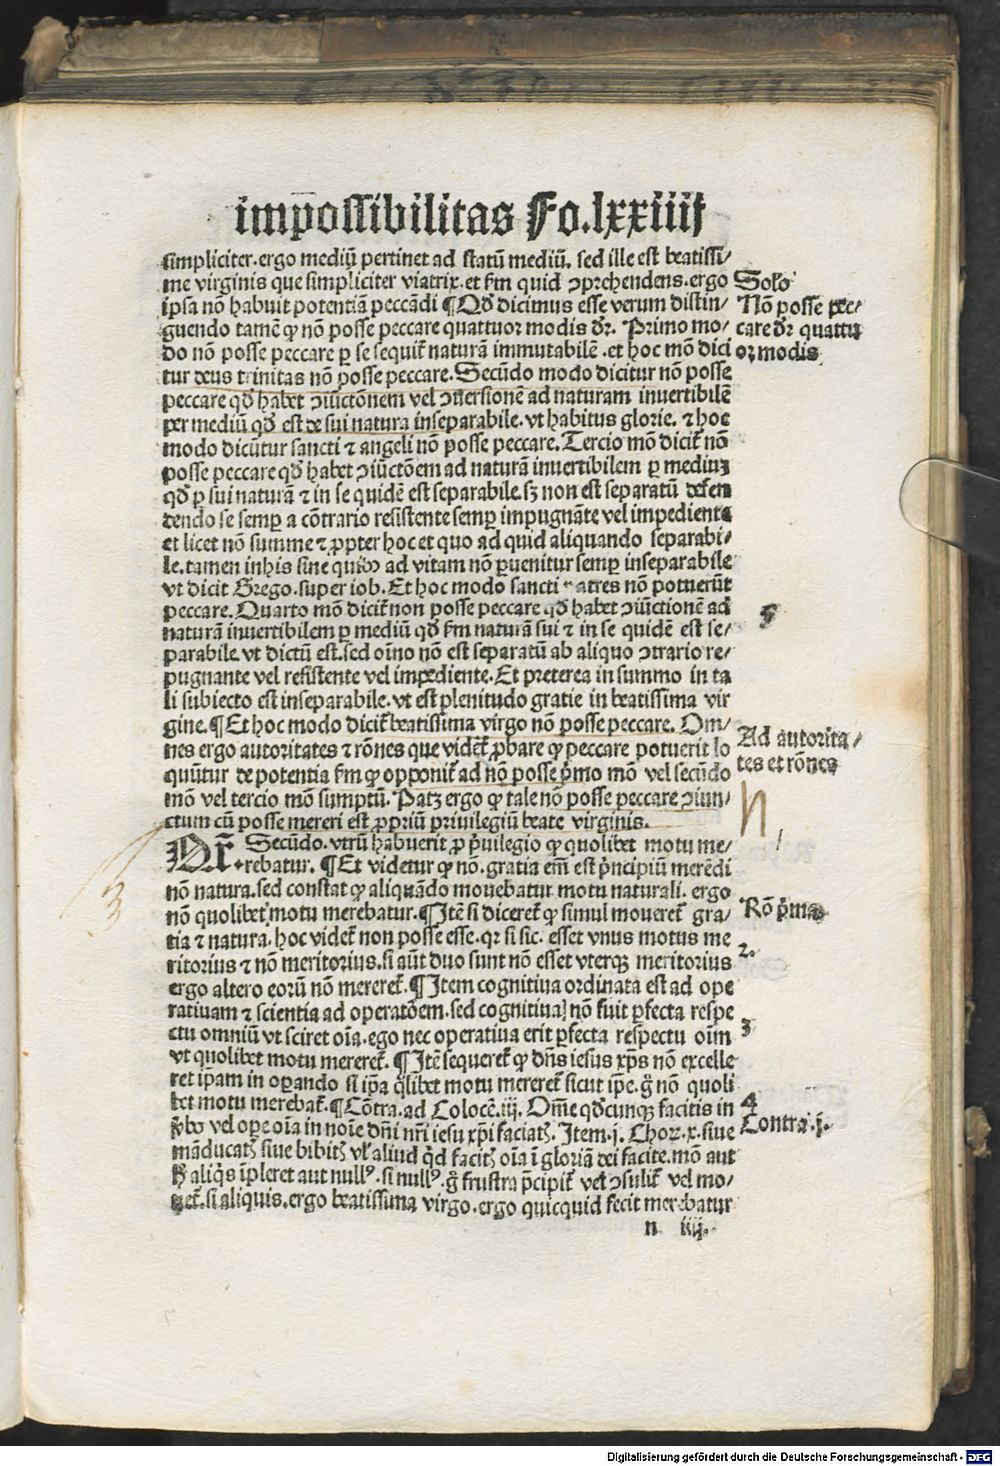 imp̄ossibilitas Fo.lxxiiij
simpliciter.ergo mediū pertinet ad statū mediū. sed ille est beatissi/
me virginis que simpliciter viatrix.et km̄ quid ↄprehendens.ergo
Solo
ipsa nō habuit potentiā peccādi ¶ Qd̓ dicimus esse verum distin/
Nō posse pec/
guendo tamē ꝙ nō posse peccare quattuor modis dr̄. Primo mo/
care dr̄ quattu
do nō posse peccare ꝑ se sequit̄ naturā immutabilē .et hoc mō dici
oꝝ modis
tur deus trinitas nō posse peccare. Secūdo modo dicitur nō posse
peccare qd̓ habet ↄiūctōnem vel ↄuersionē ad naturam inuertibilē
per mediū qd̓ est de sui natura inseparabile. vt habitus glorie. ⁊ hoc
modo dicūtur sancti ⁊ angeli nō posse peccare. Tercio mō dicit̄ nō
posse peccare qd̓ habet ↄiūctōem ad naturā inuertibilem ꝑ mediuȝ
qd̓ ꝑ sui naturā ⁊ in se quidē est separabile. sȝ non est separatū defen
dendo se semꝑ a cōtrario resistente semꝑ impugnāte vel impediente
et licet nō summe ⁊ ꝓpter hoc et quo ad quid aliquando separabi/
le. tamen in his sine ad vitam nō ꝑuenitur semꝑ inseparabile
vt dicit Grego. super iob. Et hoc modo sancti patres nō potuerūt
peccare. Quarto mō dicit̄ non posse peccare qd̓ habet ↄiūctionē ad
naturā inuertibilem ꝑ mediū qd̓ km̄ naturā sui ⁊ in se quidē est se/
parabile. vt dictū est. sed oīno nō est separatū ab aliquo ↄtrario re/
pugnante vel resistente vel impediente. Et preterea in summo in ta
li subiecto est inseparabile. vt est plenitudo gratie in beatissima vir
gine. ¶ Et hoc modo dicit̄ beatissima virgo nō posse peccare. Om/
nes ergo autoritates ⁊ rōnes que vident̄ ꝓbare ꝙ peccare potuerit lo
Ad autorita/
quūtur de potentia km̄ ꝙ opponit̄ ad nō posse p̄mo mō vel secūdo
tes et rōnes
mō vel tercio mō sumptū. Patȝ ergo ꝙ tale nō posse peccare ↄiun/
ctum cū posse mereri est ꝓpriū priuilegiū beate virginis.
Secūdo. vtrū habuerit ꝓ p̄uilegio ꝙ quolibet motu me/
rebatur. ¶ Et videtur ꝙ nō. gratia em̄ est p̄ncipiū merēdi
3
nō natura. sed constat ꝙ aliquādo mouebatur motu naturali. ergo
nō quolibet motu merebatur. ¶ Itē si diceret̄ ꝙ simul moueret̄ gra/
Rō p̄ma
tia ⁊ natura. hoc videt̄ non posse esse. qꝛ si sic. esset vnus motus me
ritorius ⁊ nō meritorius. si aūt duo sunt nō esset vterqȝ meritorius
2.
ergo altero eorū nō mereret̄. ¶ Item cognitiua ordinata est ad ope
ratiuam ⁊ scientia ad operatōem. sed cognitiua nō fuit ꝑfecta respe
ctu omniū vt sciret oīa. ego nec operatiua erit ꝑfecta respectu oīm
3
vt quolibet motu mereret̄. ¶ Itē sequeret̄ ꝙ dn̄s iesus xp̄s nō excelle
ret ip̄am in oꝑando si ip̄a q̄libet motu mereret̄ sicut ip̄e. g̊ nō quoli
bet motu merebat̄. ¶ Cōtra. ad Colocē. iij. Om̄e qd̓cunqȝ facitis in
4
ꝟbo vel oꝑe oīa in noīe dn̄i nr̄i iesu xp̄i faciatꝭ. Item .j. Choꝝ. x. siue
Contra. j.
māducatꝭ siue bibitꝭ vl̓ aliud q̇d facitꝭ oīa ī gloriā dei facite. mō aut
h̓ aliq̇s īpleret aut null⁹. si null⁹. g̊ frustra p̄cipit̄ vel ↄsulit̄ vel mo/
uet̄. si aliquis. ergo beatissima virgo. ergo quicquid fecit merebatur
n iiij.
Digitalisierung gefördert durch die Deutsche Forschungsgemeinschaft - DFG